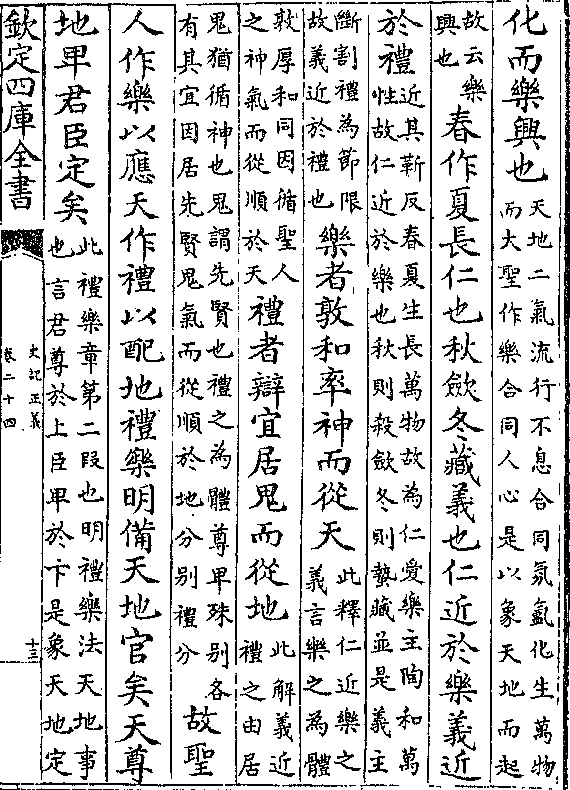 化而樂興也天地二氣流行不息合同氛氳化生萬物
而大聖作樂合同人心是以象天地而起
故云樂
興也
春作夏長仁也秋斂冬藏義也仁近於樂義近
於禮近其靳反春夏生長萬物故為仁愛樂主陶和萬
性故仁近於樂也秋則殺斂冬則蟄藏並是義主
斷割禮為節限
故義近於禮也
樂者敦和率神而從天此釋仁近樂之
義言樂之為體
敦厚和同因循聖人
之神氣而從順於天
禮者辯宜居鬼而從地此解義近
禮之由居
鬼猶循神也鬼謂先賢也禮之為體尊卑殊别各
有其宜因居先賢鬼氣而從順於地分别禮分
故聖
人作樂以應天作禮以配地禮樂明備天地官矣天尊
地卑君臣定矣此禮樂章第二段也明禮樂法天地事
也言君尊於上臣卑於卞是象天地定
欽定四庫全書
史記正義
卷二十四
十三